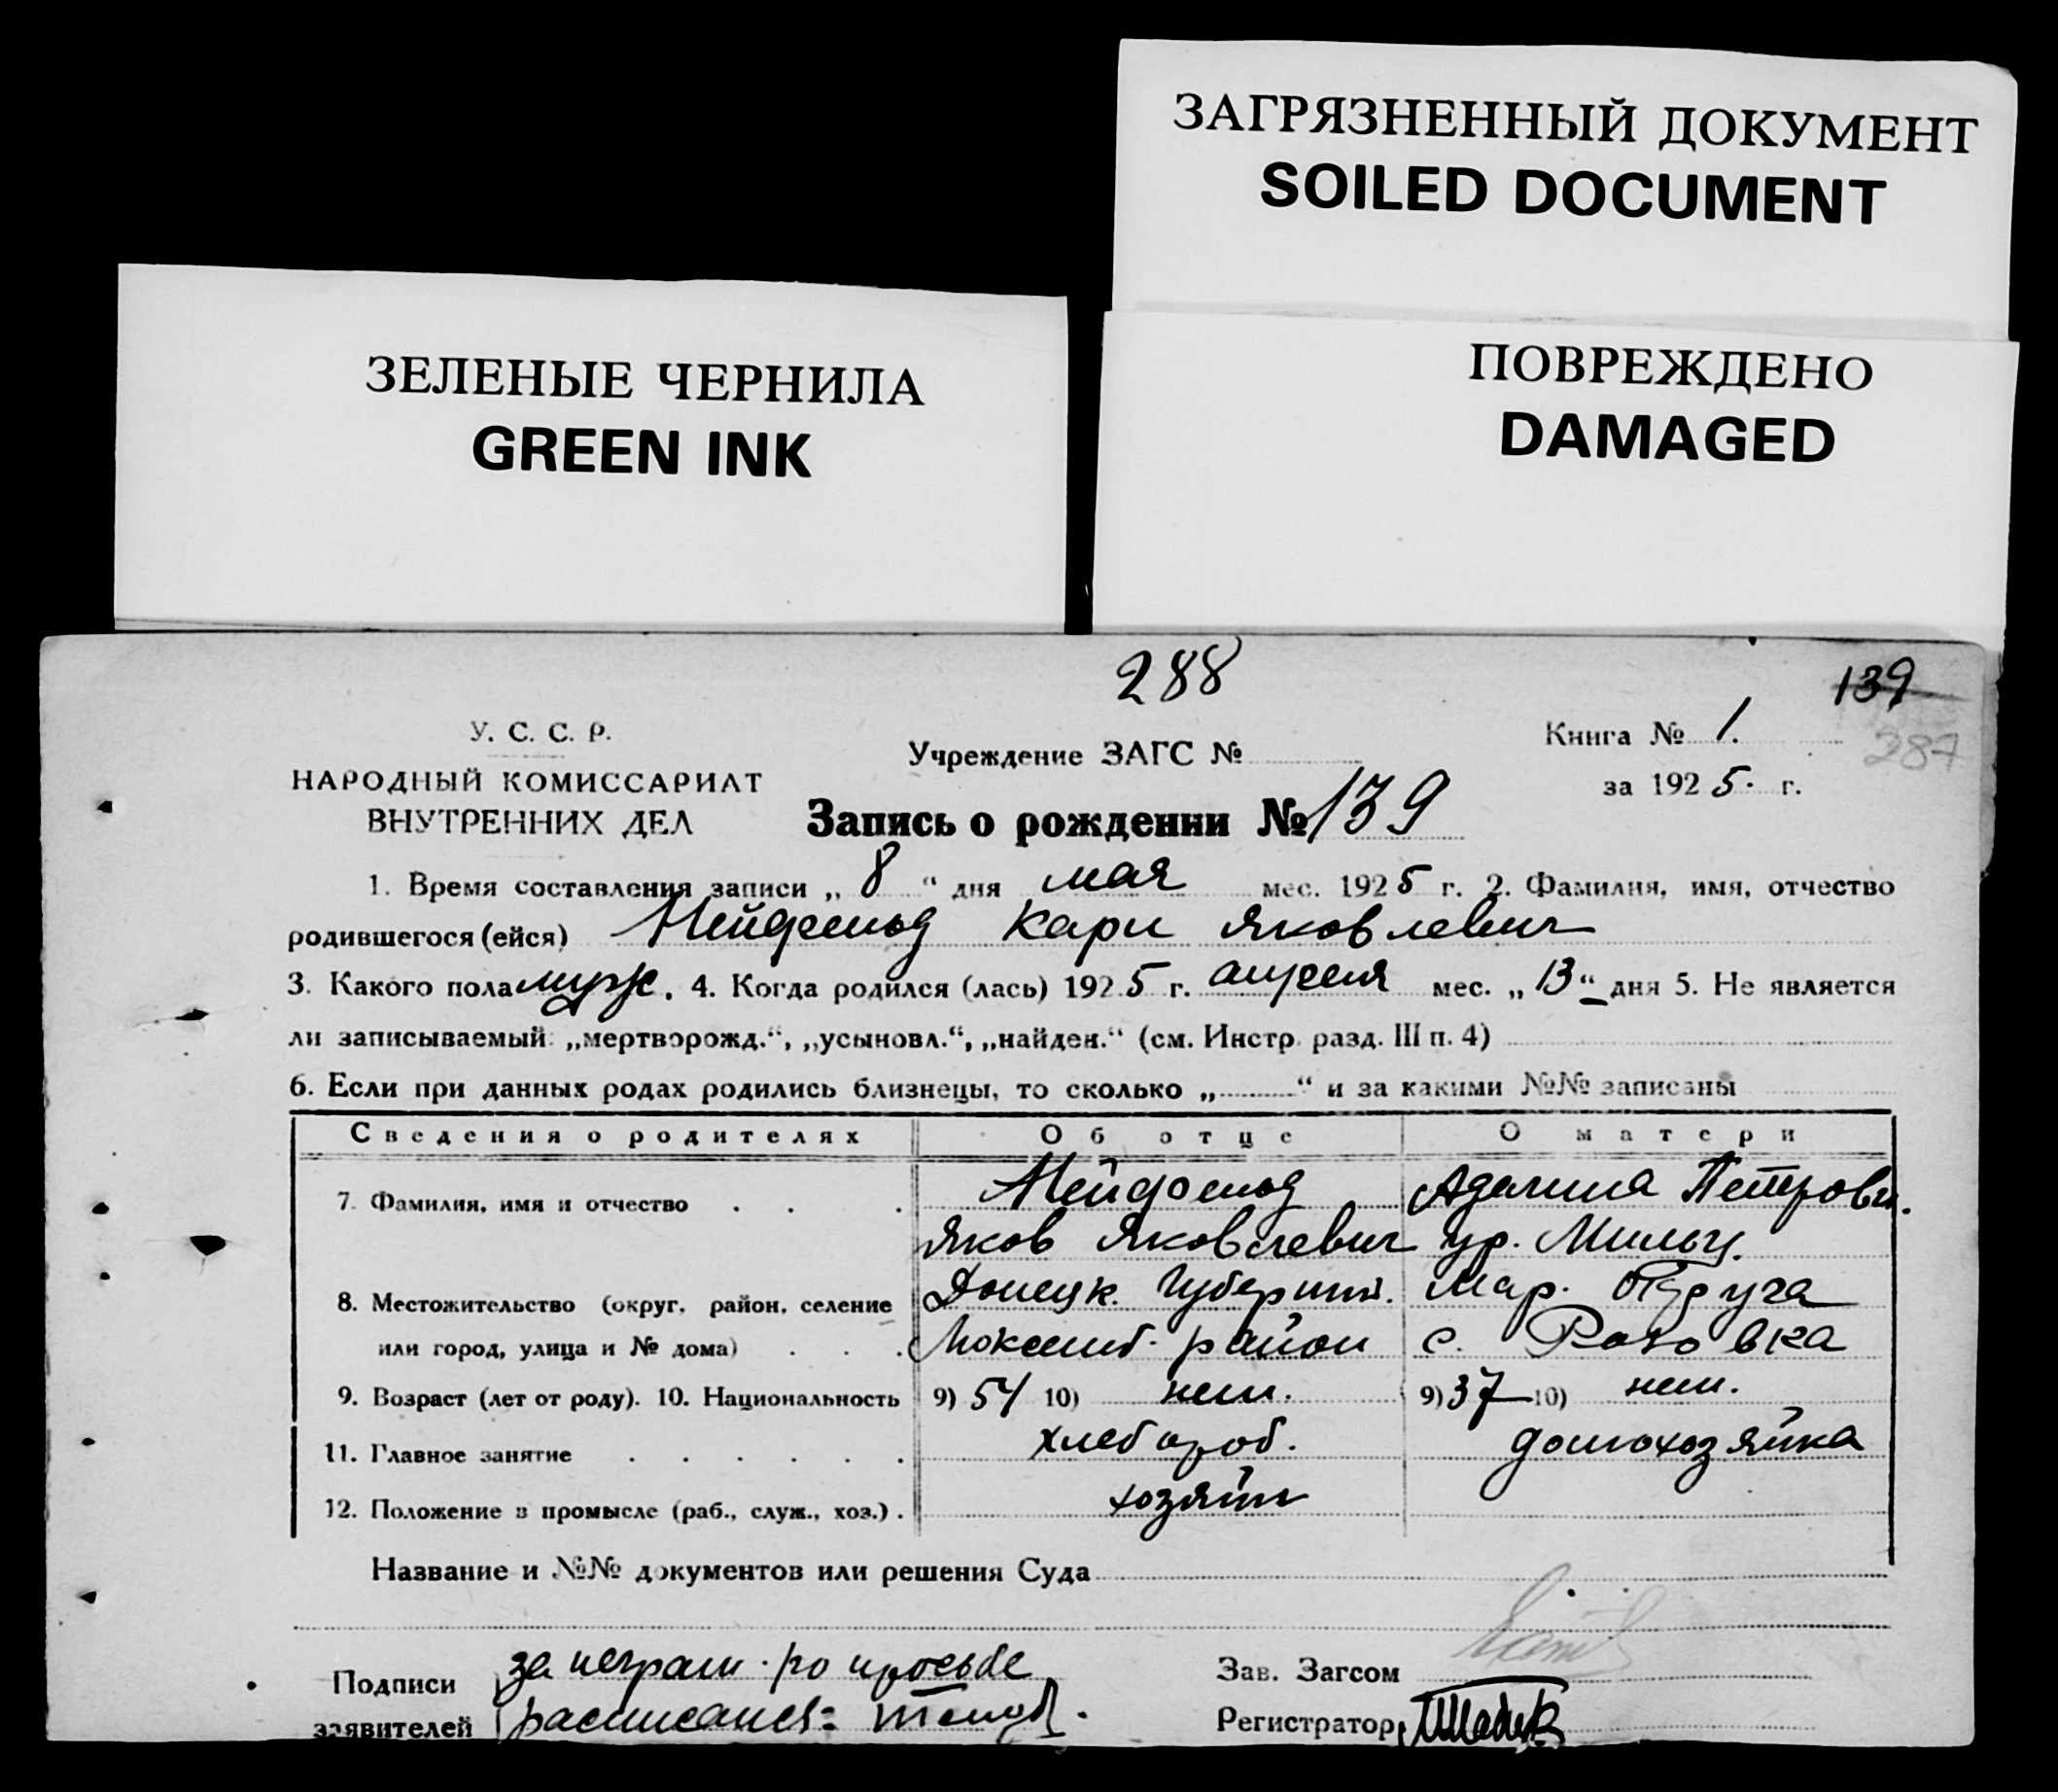 ЗАГРЯЗНЕННЫЙ ДОКУМЕНТ
SOILED DOCUMENT
ЗЕЛЕНЫЕ ЧЕРНИЛА
GREEN INK
ПОВРЕЖДЕНО
DAMAGED
288
139
У. С. С. Р.
НАРОДНЫЙ КОМИССАРИАТ
ВНУТРЕННИХ ДЕЛ
Учреждение ЗАГС №
Книга № 1.
287
за 1925 г.
Запись о рождении № 139
1. Время составления записи „ 8 “ дня мая мес. 1925 г. 2. Фамилия, имя, отчество
родившегося (ейся) Нейфельд Карл Яковлевич
3. Какого пола муж. 4. Когда родился (лась) 1925 г. апреля мес. „ 13 “ дня 5. Не является
ли записываемый: „мертворожд.“, „усыновл.“, „найден.“ (см. Инстр. разд. III п. 4)
6. Если при данных родах родились близнецы, то сколько „ “ и за какими №№ записаны
Сведения о родителях Об отце О матери
7. Фамилия, имя и отчество Нейфельд Аделина Петровн.
Яков Яковлевич ур. Мильц.
8. Местожительство (округ, район, селение Донецк. Губерния. Мар. Округа
или город, улица и № дома) район с. Розовка
9. Возраст (лет от роду). 10. Национальность 9) 54 10) нем. 9) 37 10) нем.
11. Главное занятие хлебороб. домохозяйка
12. Положение в промысле (раб., служ., хоз.) хозяин
Название и №№ документов или решения Суда
Подписи за неграм. по просьбе
Зав. Загсом
заявителей расписался:
Регистратор